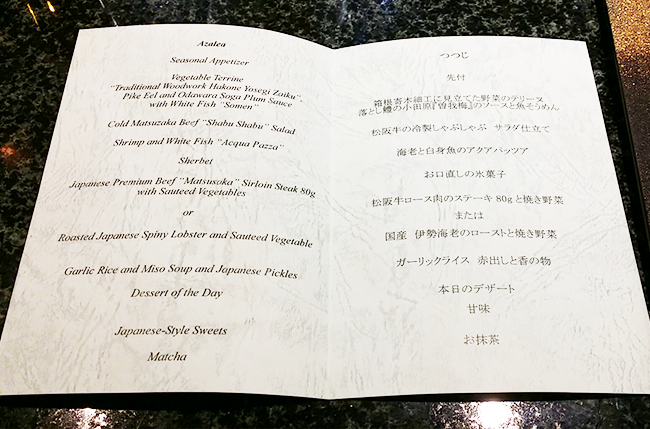 Azalea
Seasonal Appetizer
Vegetable Terrine
"Traditional Woodwork Hakone Yosegi Zaiku",
Pike Eel and Odawara Soga Plum Sauce
with White Fish "Somen"
Cold Matsuzaka Beef "Shabu Shabu" Salad
Shrimp and White Fish "Acqua Pazza"
Sherbet
Japanese Premium Beef "Matsusaka" Sirloin Steak 80g
with Sauteed Vegetables
or
Roasted Japanese Spiny Lobster and Sauteed Vegetable
Garlic Rice and Miso Soup and Japanese Pickles
Dessert of the Day
Japanese-Style Sweets
Matcha
つつじ
先付
箱根寄木細工に見立てた野菜のテリーヌ
落とし鱧の小田原『曽我梅』のソースと魚そうめん
松阪牛の冷製しゃぶしゃぶ サラダ仕立て
海老と白身魚のアクアパッツア
お口直しの氷菓子
松阪牛ロース肉のステーキ 80gと焼き野菜
または
国産 伊勢海老のローストと焼き野菜
ガーリックライス 赤出しと香の物
本日のデザート
甘味
お抹茶